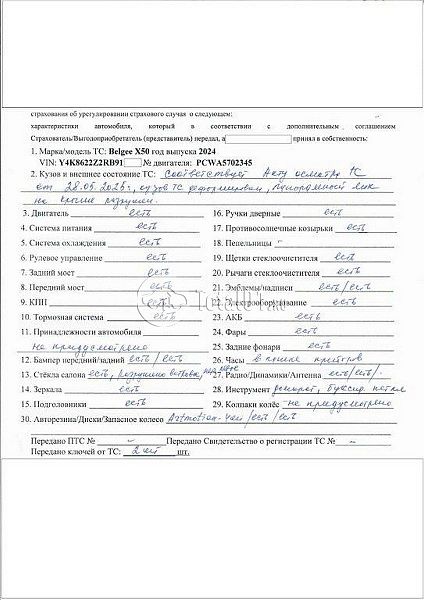 страхования об урегулировании страхового случая о следующем:
характеристики автомобиля, который в соответствии с дополнительным соглашением
Страхователь/Выгодоприобретатель (представитель) передал, а принял в собственность:
1. Марка/модель ТС: Belgee X50 год выпуска 2024
VIN: Y4K8622Z2RB91 № двигателя: PCWA5702345
2. Кузов и внешнее состояние ТС: Соответствует Акту осмотра ТС
от 28.05.2025г, кузов ТС деформирован, панорамный люк
на крыше разрушен.
3. Двигатель есть 16. Ручки дверные есть
4. Система питания есть 17. Противосолнечные козырьки есть
5. Система охлаждения есть 18. Пепельницы -
6. Рулевое управление есть 19. Щетки стеклоочистителя есть
7. Задний мост есть 20. Рычаги стеклоочистителей есть
8. Передний мост есть 21. Эмблемы/надписи есть/есть
9. КПП есть 22. Электрооборудование есть
10. Тормозная система есть 23. АКБ есть
11. Принадлежности автомобиля 24. Фары есть
не предусмотрено 25. Задние фонари есть
12. Бампер передний/задний есть/есть 26. Часы в панели приборов
13. Стёкла салона есть, разрушено ветровое, 27. Радио/Динамики/Антенна есть/есть/-
14. Зеркала есть 28. Инструмент домкрат, буксир. петля
15. Подголовники есть 29. Колпаки колёс не предусмотрено
30. Авторезина/Диски/Запасное колесо есть/есть
Передано ПТС № - Передано Свидетельство о регистрации ТС № -
Передано ключей от ТС: 2 шт.
Total01.ru